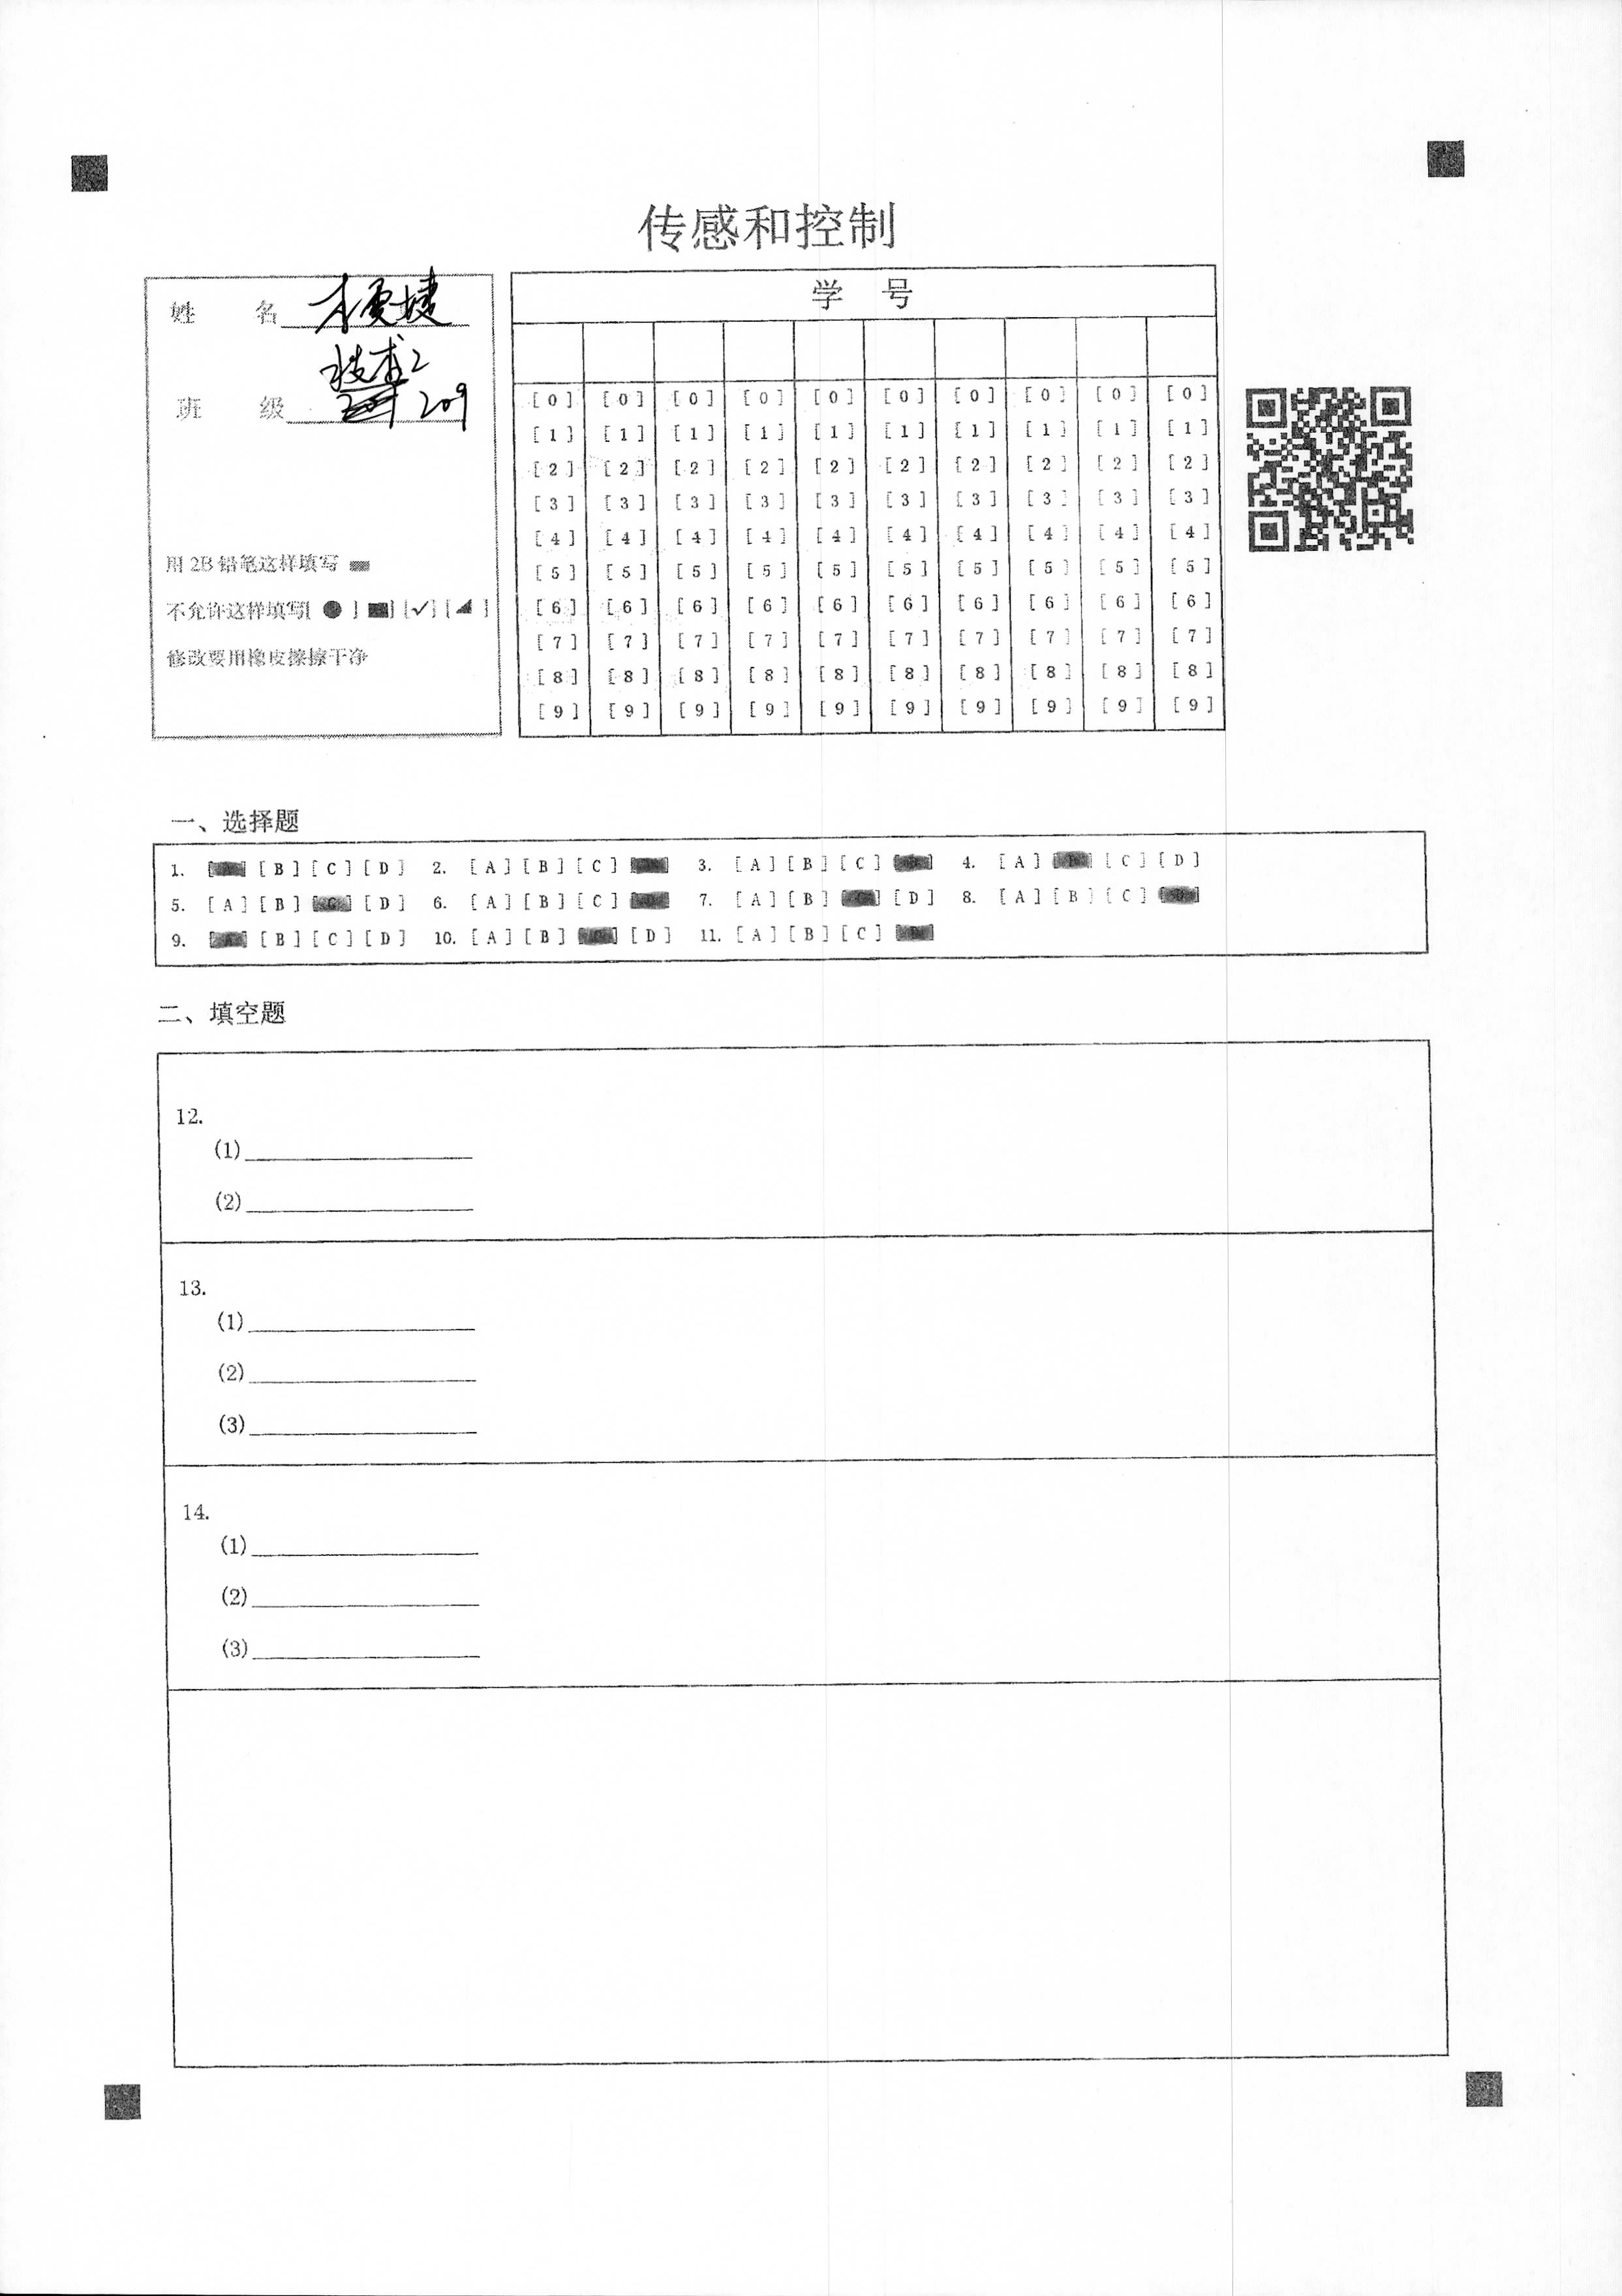 传感和控制
姓 名
技术2
班 级 209
用 2B 铅笔这样填写
不允许这样填写[ ● ] [■] [✓] [◢ ]
修改要用橡皮擦擦干净
学 号
[0] [0] [0] [0] [0] [0] [0] [0] [0] [0]
[1] [1] [1] [1] [1] [1] [1] [1] [1] [1]
[2] [2] [2] [2] [2] [2] [2] [2] [2] [2]
[3] [3] [3] [3] [3] [3] [3] [3] [3] [3]
[4] [4] [4] [4] [4] [4] [4] [4] [4] [4]
[5] [5] [5] [5] [5] [5] [5] [5] [5] [5]
[6] [6] [6] [6] [6] [6] [6] [6] [6] [6]
[7] [7] [7] [7] [7] [7] [7] [7] [7] [7]
[8] [8] [8] [8] [8] [8] [8] [8] [8] [8]
[9] [9] [9] [9] [9] [9] [9] [9] [9] [9]
一、选择题
1. [A] [B] [C] [D] 2. [A] [B] [C] [D] 3. [A] [B] [C] [D] 4. [A] [B] [C] [D]
5. [A] [B] [C] [D] 6. [A] [B] [C] [D] 7. [A] [B] [C] [D] 8. [A] [B] [C] [D]
9. [A] [B] [C] [D] 10. [A] [B] [C] [D] 11. [A] [B] [C] [D]
二、填空题
12.
(1)
(2)
13.
(1)
(2)
(3)
14.
(1)
(2)
(3)